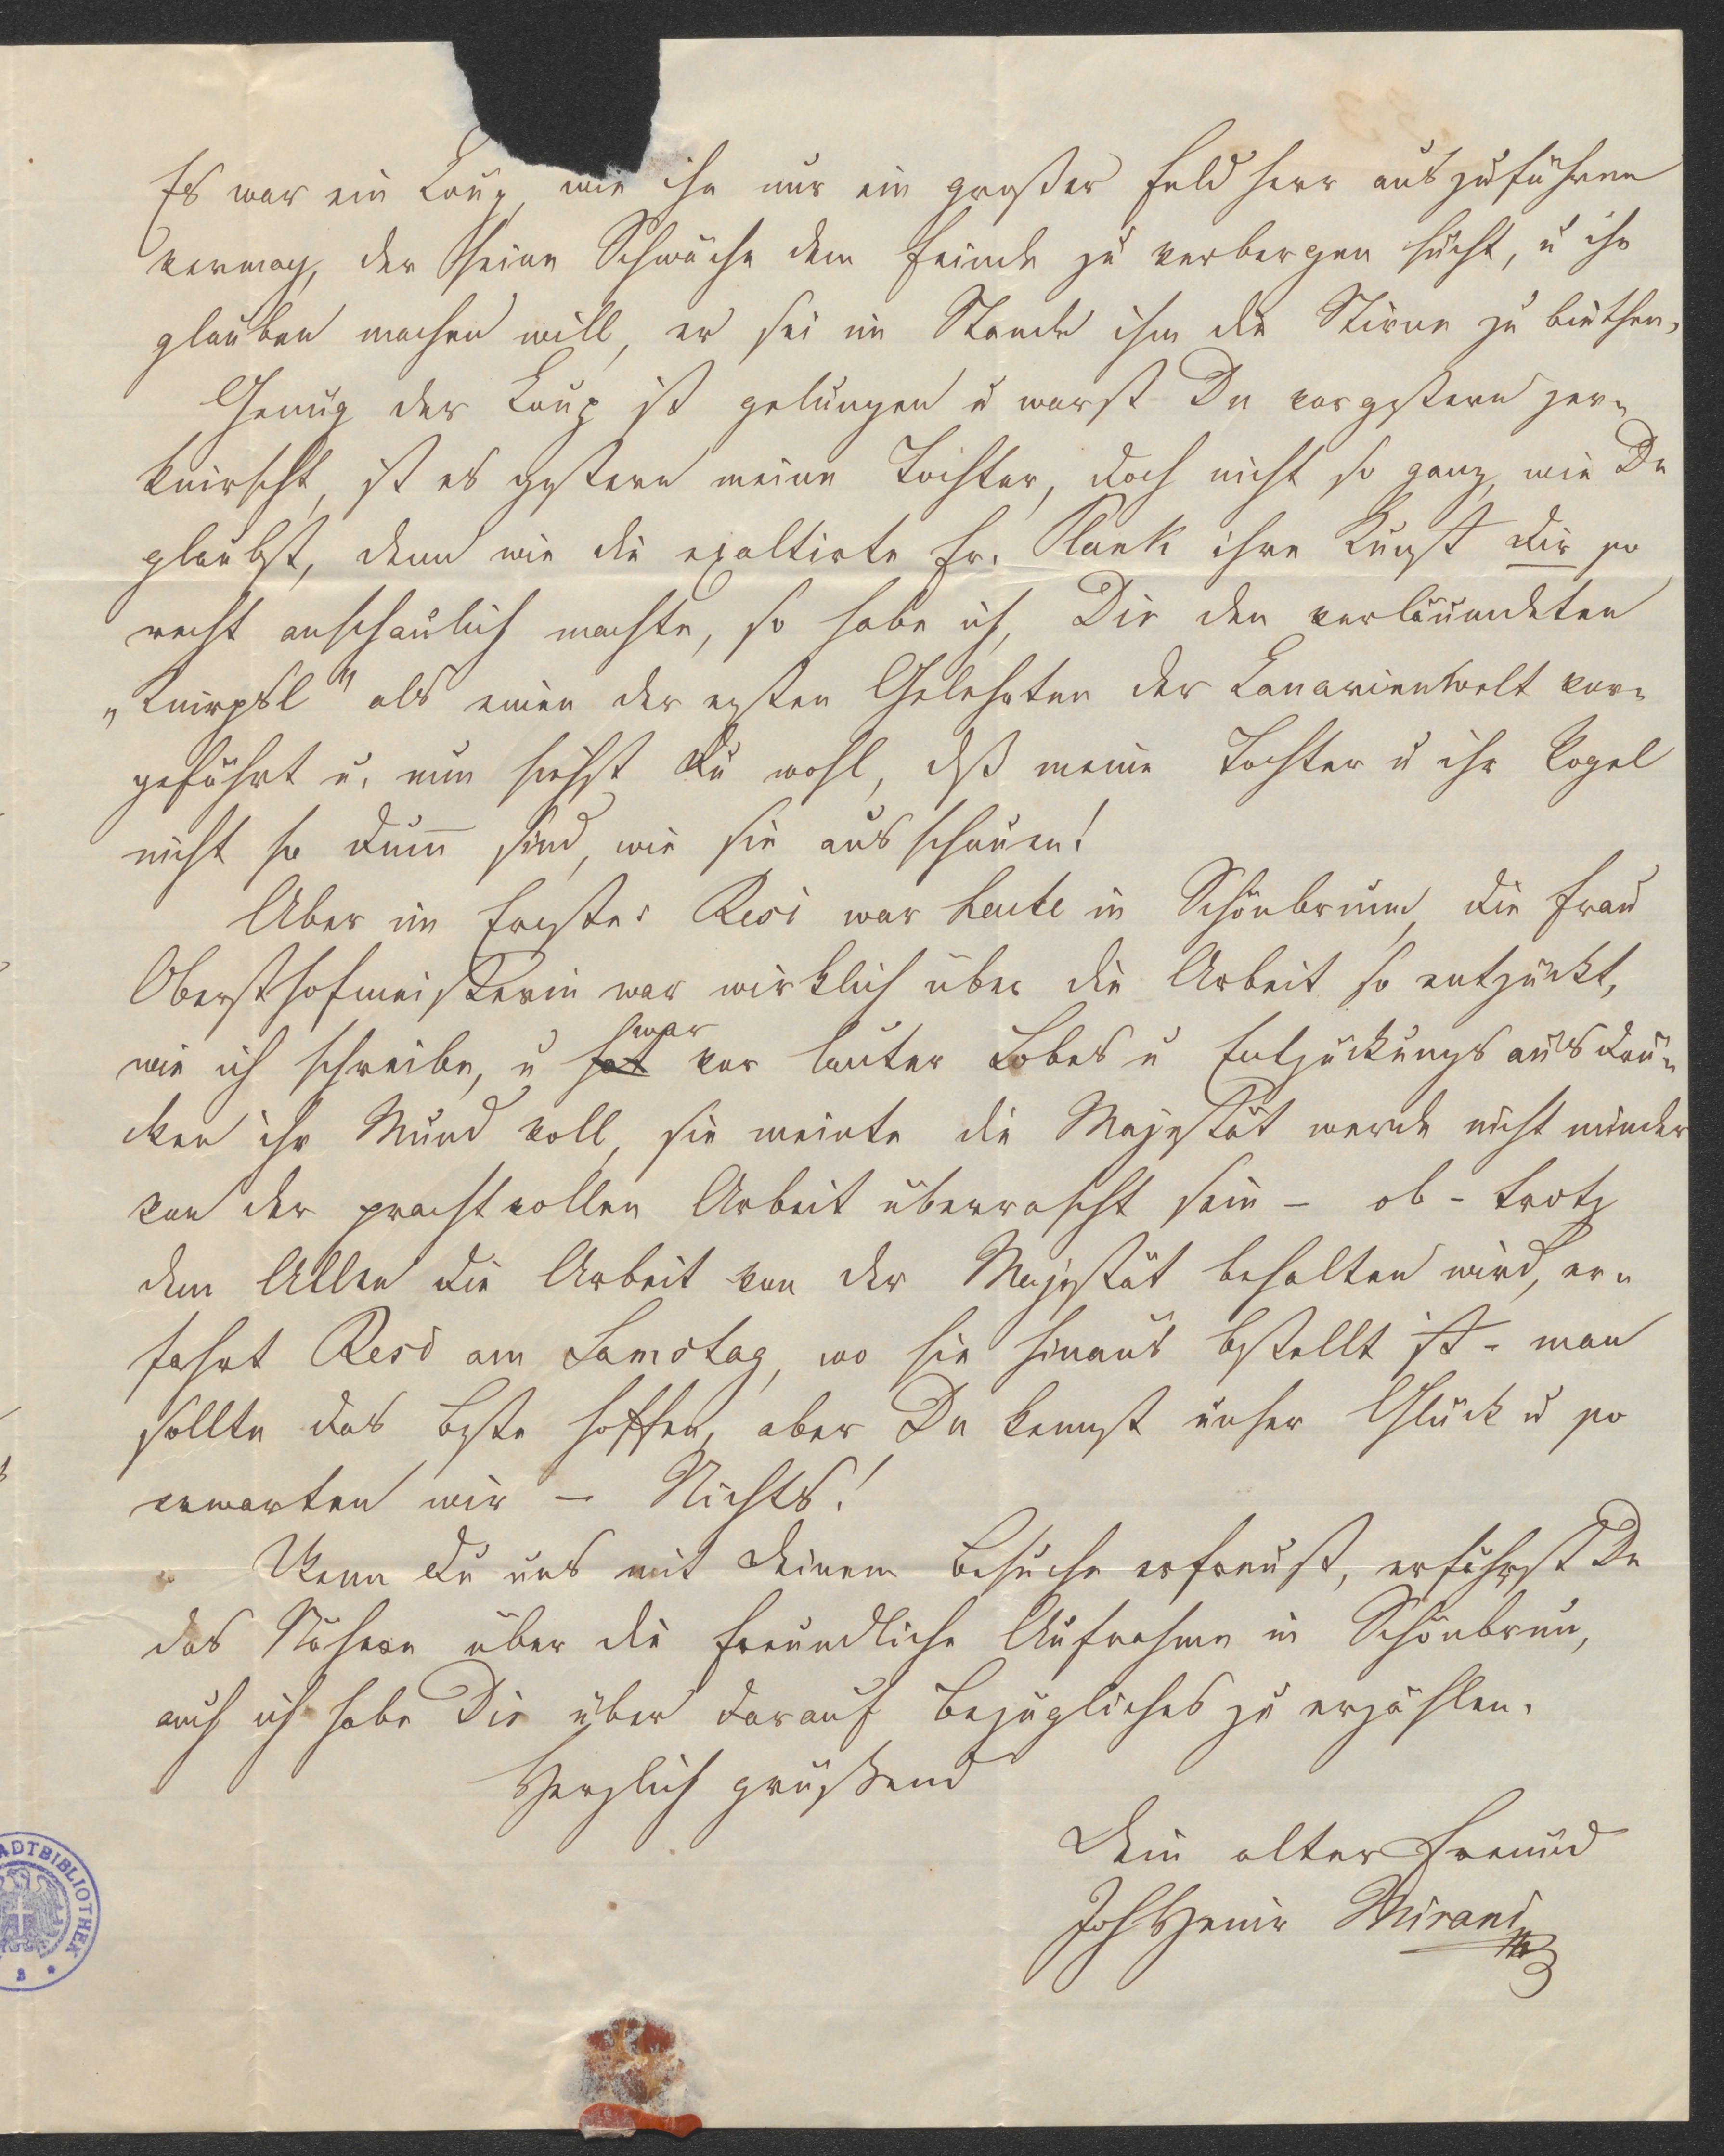 Es war ein Coup, wie ihn nur ein großer Feldherr auszuführen
vermag, der seine Schwäche dem Feinde zu verbergen sucht, u ihn
glauben machen will, er sei im Stande ihm die Stirne zu biethen.
Genug der Coup ist gelungen u warst Du vorgestern zer-
knirscht, ist es gestern meine Tochter, doch nicht so ganz, wie Du
glaubst, denn wie die exaltirte Fr. Plank ihre Kunst Dir so
recht anschaulich machte, so habe ich, Dir den verläumdeten
„Knirpsl" als einen der ersten Gelehrten der Canarienwelt vor-
geführt u. nun siehst Du wohl, dß meine Tochter u ihr Vogel
nicht so dum̄ sind, wie sie ausschauen!
Aber im Ernste: Resi war heute in Schönbrunn, die Frau
Obersthofmeisterin war wirklich über die Arbeit so entzückt,
wie ich schreibe, u hat war vor lauter Lobes u Entzückungsausdrü-
cken ihr Mund voll, sie meinte die Majestät werde nicht minder
von der prachtvollen Arbeit überrascht sein – ob – trotz
dem Allen die Arbeit von der Majestät behalten wird, er-
fährt Resi am Samstag, wo sie hinaus bestellt ist – man
sollte das Beste hoffen, aber Du kennst unser Glück u so
erwarten wir – Nichts!
Wenn Du uns mit Deinem Besuche erfreust, erfährst Du
das Nähere über die freundliche Aufnahme in Schönbrun,
auch ich habe Dir über darauf Bezügliches zu erzählen.
Herzlich grüßend
Dein alter Freund
Joh Heinr Mirani
ADTBIBLIOTHEK